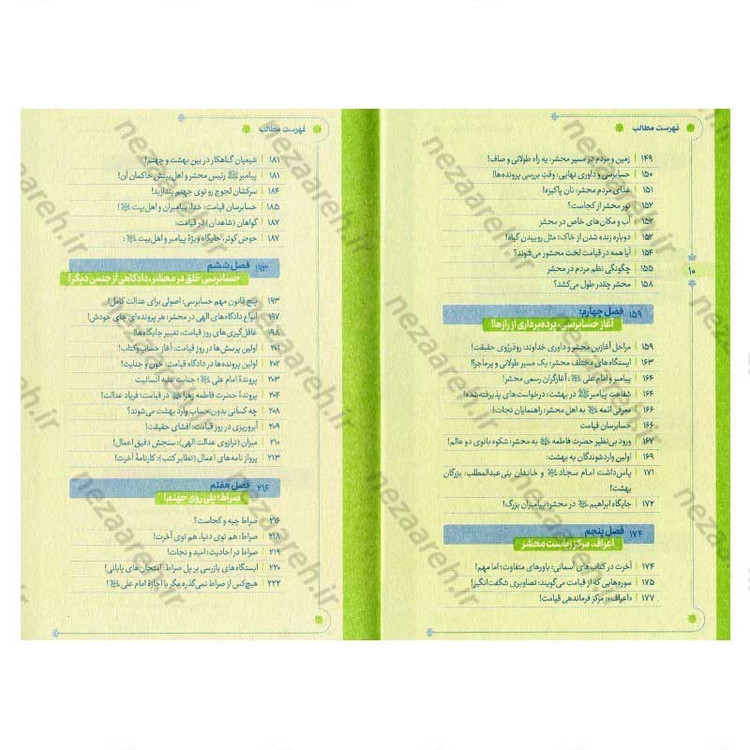 فهرست مطالب
زمین و مردم در مسیر محشر: یه راه طولانی و صاف! | ۱۴۹
حسابرسی و داوری نهایی: وقتِ بررسی پرونده‌ها! | ۱۵۰
غذای مردم محشر: نان پاکیزه! | ۱۵۱
نور محشر از کجاست؟ | ۱۵۲
آب و مکان‌های خاص در محشر | ۱۵۲
دوباره زنده شدن از خاک: مثل روییدن گیاه! | ۱۵۲
آیا همه در قیامت لخت محشور می‌شوند؟ | ۱۵۴
چگونگی نظم مردم در محشر | ۱۵۵
محشر چقدر طول می‌کشد؟ | ۱۵۸
۱۰
فصل چهارم: ۱۵۹
آغاز حسابرسی، پرده‌برداری از رازها!
مراحل آغازین محشر و داوری خداوند: رودررَوی حقیقت! | ۱۵۹
ایستگاه‌های مختلف محشر: یک مسیر طولانی و پرماجرا! | ۱۶۳
پیامبر و امام علی ﷺ: آغازگران رسمی محشر! | ۱۶۴
شفاعت پیامبر ﷺ در بهشت: درخواست‌های پذیرفته‌شده! | ۱۶۴
معرفی ائمه ﷺ به اهل محشر: راهنمایان نجات! | ۱۶۶
حسابرسان قیامت | ۱۶۶
ورود بی‌نظیر حضرت فاطمه ﷺ به محشر: شکوه بانوی دو عالم! | ۱۶۷
اولین واردشوندگان به بهشت: | ۱۶۹
پاس‌داشت امام سجاد ﷺ و خاندان بنی عبدالمطلب: بزرگان | ۱۷۱
بهشت!
جایگاه ابراهیم ﷺ در محشر: پیامبران بزرگ! | ۱۷۲
فصل پنجم ۱۷۴
اعراف، مرکز ریاست محشر
آخرت در کتاب‌های آسمانی: باورهای متفاوت؛ اما مهم! | ۱۷۴
سوره‌هایی که از قیامت می‌گویند: تصاویری شگفت‌انگیز! | ۱۷۵
«اعراف»: مرکز فرماندهی قیامت! | ۱۷۷
فهرست مطالب
شیعیان گناهکار در بین بهشت و جهنم! | ۱۸۱
پیامبر ﷺ رئیس محشر و اهل‌بیتش حاکمان آن! | ۱۸۱
سرکشان لجوج رو توی جهنم بندازید! | ۱۸۴
حسابرسان قیامت: خدا، پیامبران و اهل‌بیت ﷺ! | ۱۸۵
گواهان (شاهدان) در قیامت: | ۱۸۷
حوض کوثر، جایگاه ویژهٔ پیامبر و اهل‌بیت ﷺ: | ۱۸۷
فصل ششم ۱۹۳
حسابرسی خلق در محشر، دادگاهی از جنس دیگر!
پنج قانون مهم حسابرسی: اصولی برای عدالت کامل! | ۱۹۳
انواع دادگاه‌های الهی در محشر: هر پرونده‌ای جای خودش! | ۱۹۷
غافل‌گیری‌های روز قیامت: تغییر جایگاه‌ها! | ۱۹۸
اولین پرسش‌ها در روز قیامت: آغاز حساب‌وکتاب! | ۲۰۱
اولین پرونده‌ها در دادگاه قیامت: خون و جنایت! | ۲۰۲
پروندهٔ امام علی ﷺ: جنایت علیه انسانیت | ۲۰۳
پروندهٔ حضرت فاطمه زهرا ﷺ در قیامت: فریاد عدالت! | ۲۰۴
چه کسانی بدون حساب وارد بهشت می‌شوند؟ | ۲۰۸
آبروریزی در روز قیامت: افشای حقیقت! | ۲۰۹
میزان (ترازوی عدالت الهی): سنجش دقیق اعمال! | ۲۱۰
پرواز نامه‌های اعمال (تطایر کتب): کارنامهٔ آخرت! | ۲۱۳
فصل هفتم ۲۱۶
صراط؛ پلی روی جهنم!
صراط چیه و کجاست؟ | ۲۱۶
صراط: هم توی دنیا، هم توی آخرت! | ۲۱۸
صراط در احادیث: امید و نجات! | ۲۱۹
ایستگاه‌های بازرسی بر پل صراط: امتحان‌های پایانی! | ۲۲۰
هیچ‌کس از صراط نمی‌گذره مگر با اجازهٔ امام علی ﷺ! | ۲۲۲
nezaareh.ir